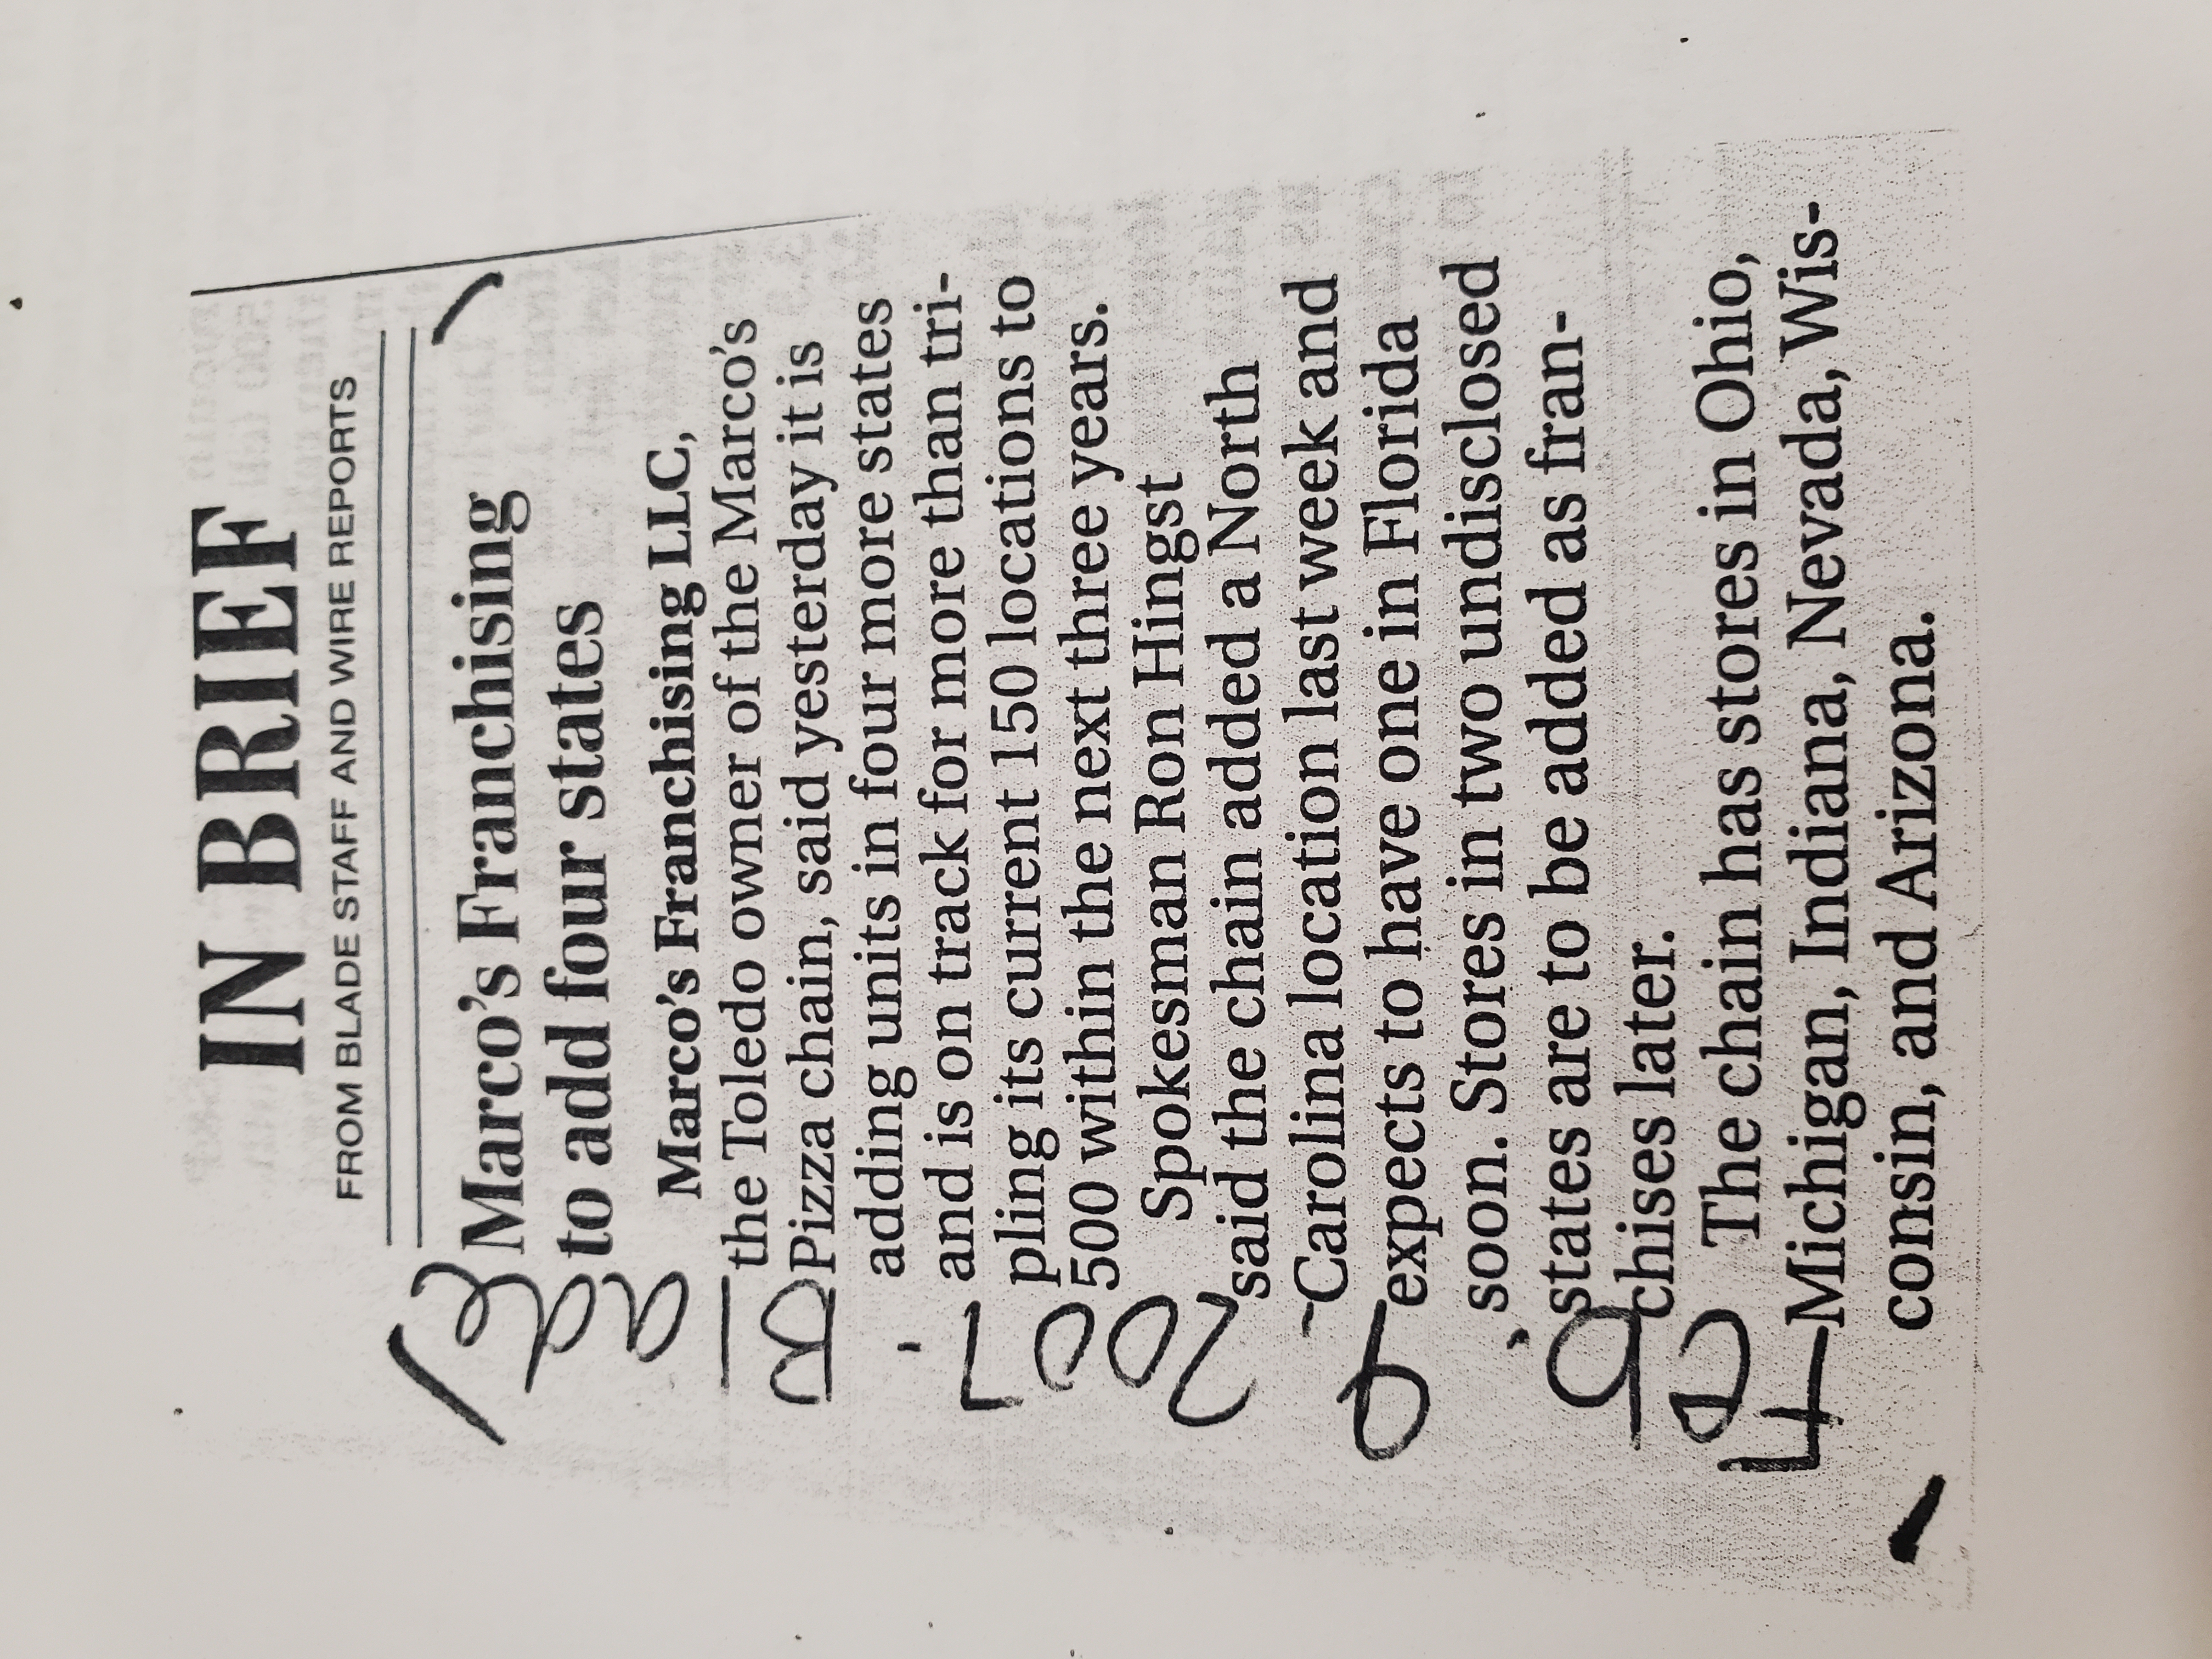 IN BRIEF
FROM BLADE STAFF AND WIRE REPORTS
Marco's Franchising
to add four states
Marco's Franchising LLC,
the Toledo owner of the Marco's
Pizza chain, said yesterday it is
adding units in four more states
and is on track for more than tri-
pling its current 150 locations to
500 within the next three years.
Spokesman Ron Hingst
said the chain added a North
Carolina location last week and
expects to have one in Florida
soon. Stores in two undisclosed
states are to be added as fran-
chises later.
The chain has stores in Ohio,
Michigan, Indiana, Nevada, Wis-
consin, and Arizona.